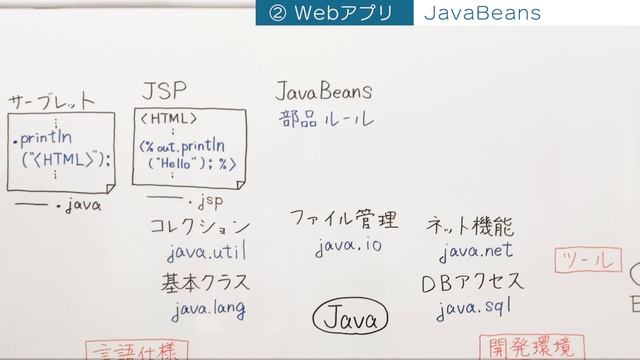 ② Webアプリ JavaBeans
サーブレット
⋮
.println
("<HTML>");
⋮
―― .java
JSP
<HTML>
⋮
<% out.println
("Hello"); %>
⋮
―― .jsp
JavaBeans
部品ルール
コレクション
java.util
ファイル管理
java.io
ネット機能
java.net
基本クラス
java.lang
DBアクセス
java.sql
Java
ツール
言語仕様
開発環境